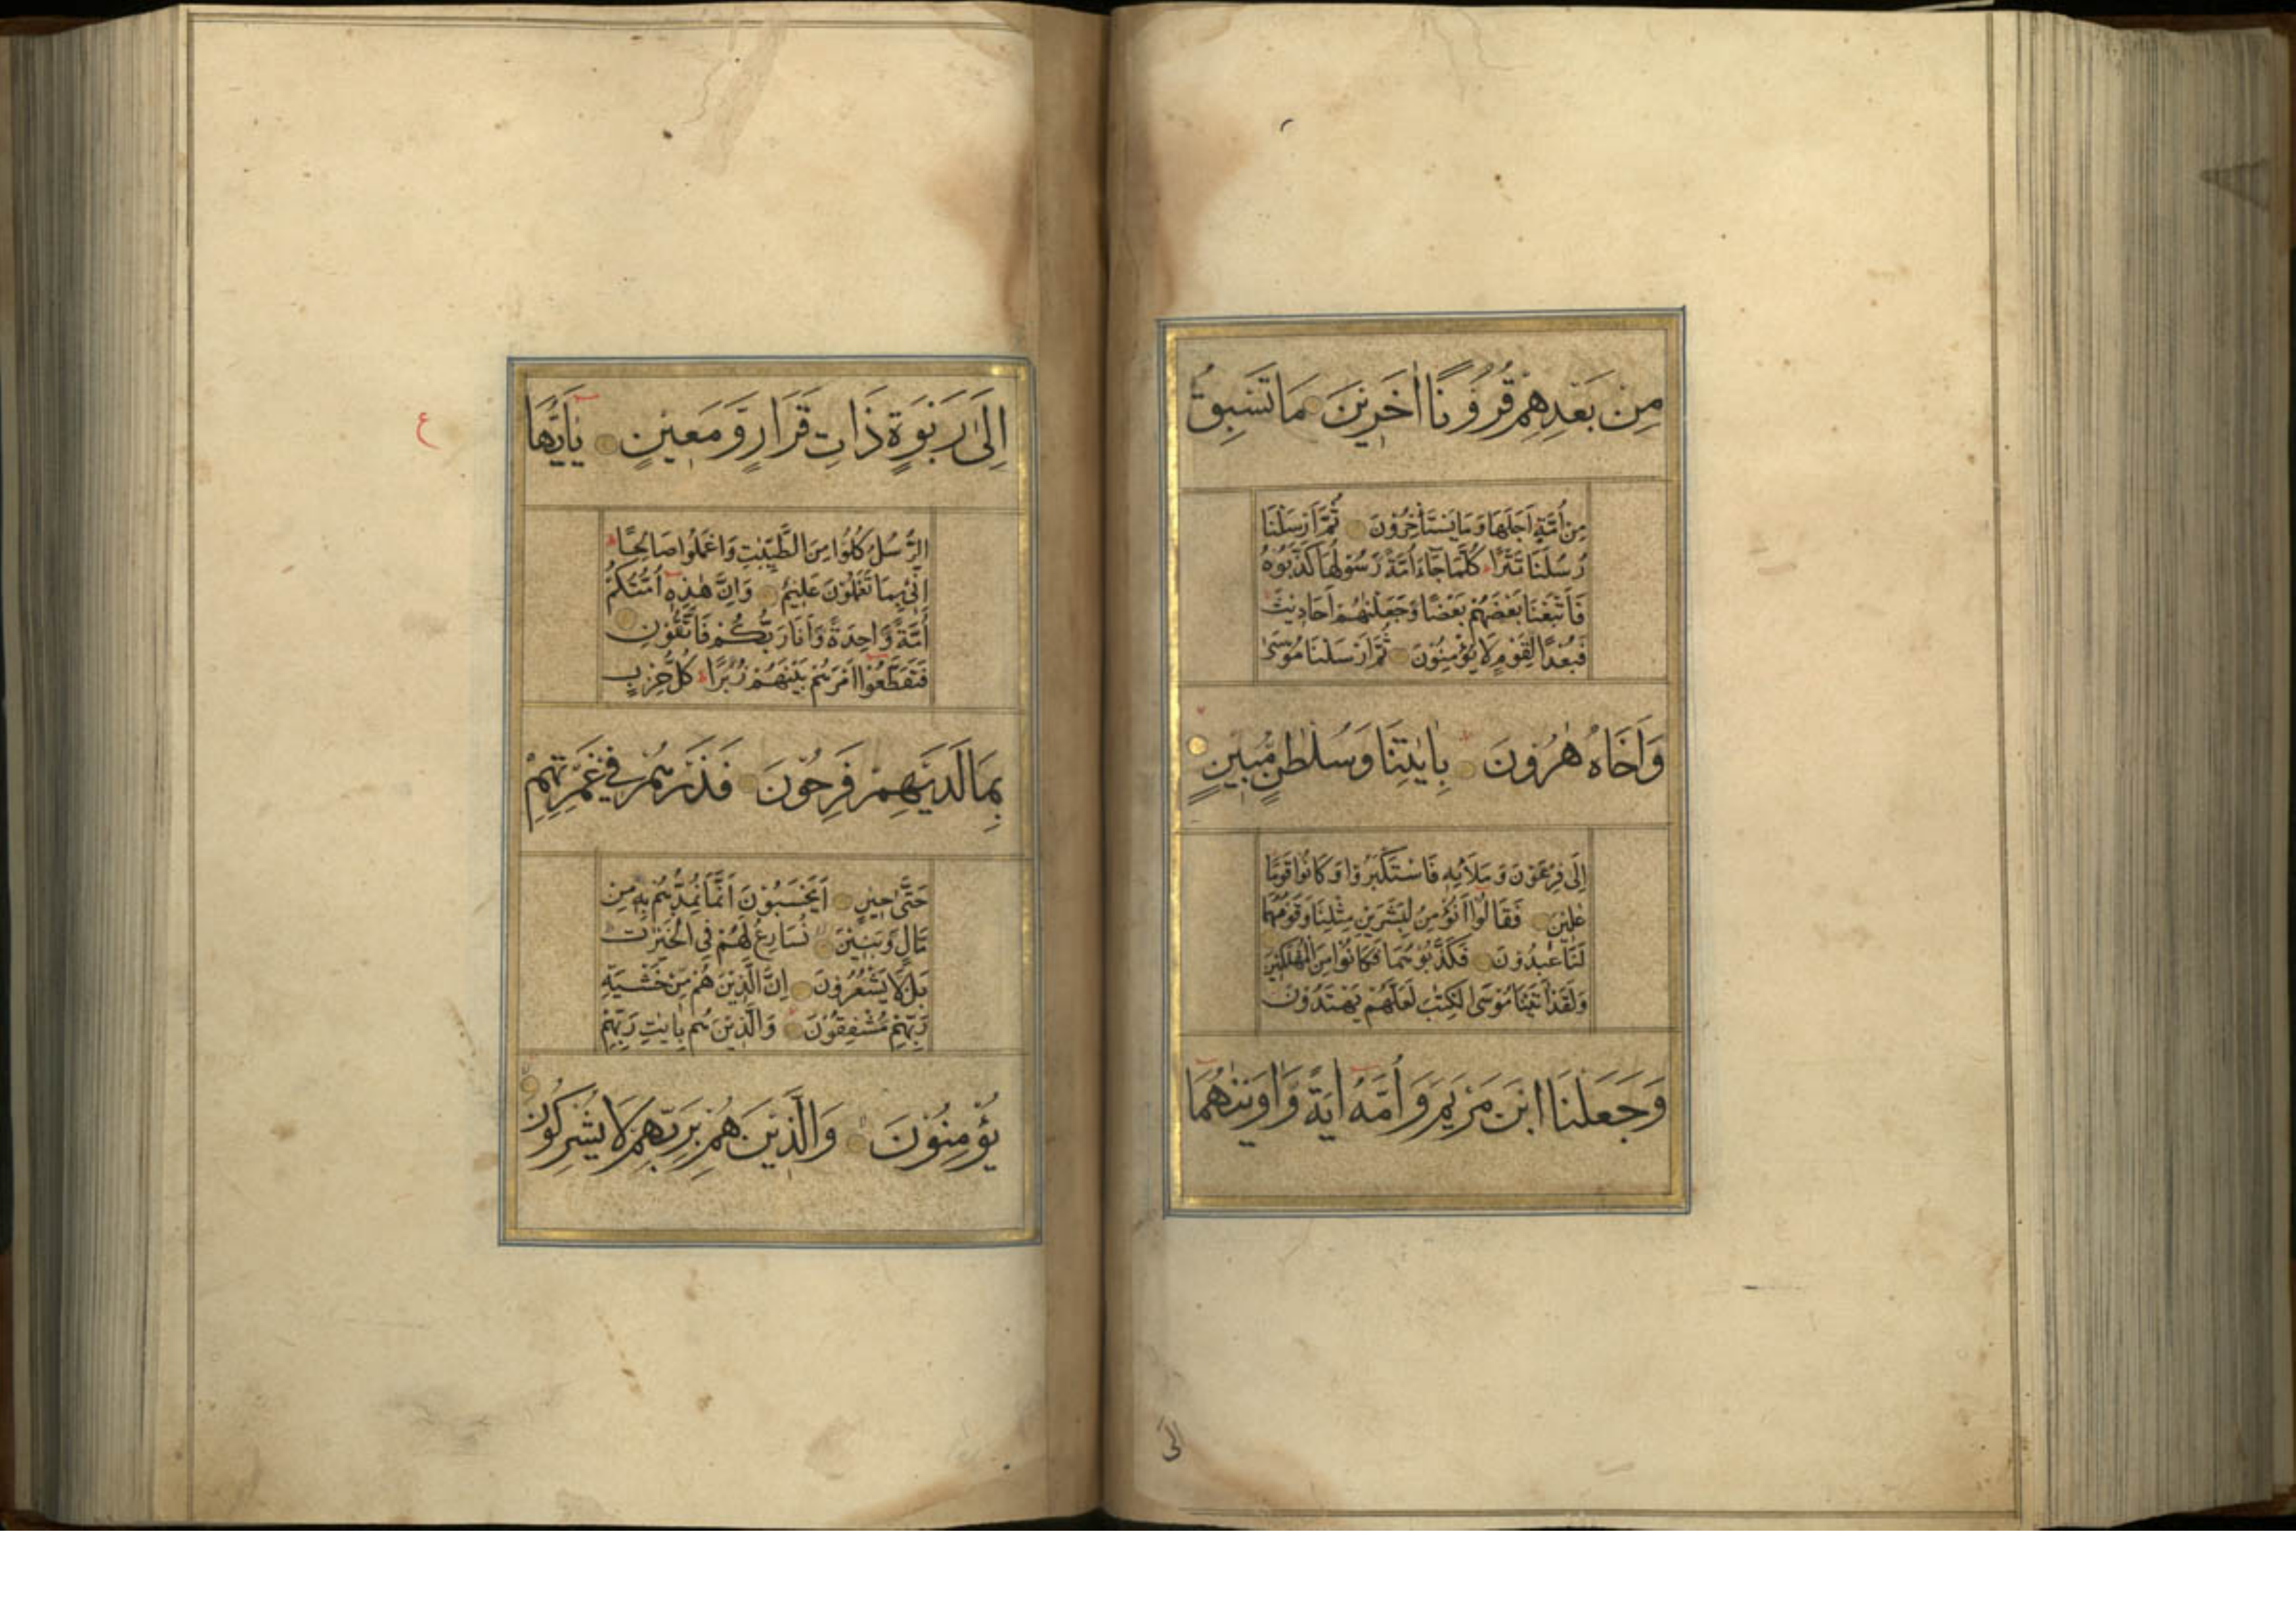 مِنْ بَعْدِهِمْ قُرُوْنًا اٰخَرِيْنَ مَا تَسْبِقُ
مِنْ اُمَّةٍ اَجَلَهَا وَمَا يَسْتَاْخِرُوْنَ ثُمَّ اَرْسَلْنَا
رُسُلَنَا تَتْرًا كُلَّمَا جَآءَ اُمَّةً رَسُوْلُهَا كَذَّبُوْهُ
فَاَتْبَعْنَا بَعْضَهُمْ بَعْضًا وَجَعَلْنٰهُمْ اَحَادِيْثَ
فَبُعْدًا لِقَوْمٍ لَا يُؤْمِنُوْنَ ثُمَّ اَرْسَلْنَا مُوْسٰى
وَاَخَاهُ هٰرُوْنَ بِاٰيٰتِنَا وَسُلْطٰنٍ مُّبِيْنٍ
اِلٰى فِرْعَوْنَ وَمَلَا۟ئِهٖ فَاسْتَكْبَرُوْا وَكَانُوْا قَوْمًا
عٰلِيْنَ فَقَالُوْا اَنُؤْمِنُ لِبَشَرَيْنِ مِثْلِنَا وَقَوْمُهُمَا
لَنَا عٰبِدُوْنَ فَكَذَّبُوْهُمَا فَكَانُوْا مِنَ الْمُهْلَكِيْنَ
وَلَقَدْ اٰتَيْنَا مُوْسَى الْكِتٰبَ لَعَلَّهُمْ يَهْتَدُوْنَ
وَجَعَلْنَا ابْنَ مَرْيَمَ وَاُمَّهٗ اٰيَةً وَّاٰوَيْنٰهُمَا
الى
ع
اِلٰى رَبْوَةٍ ذَاتِ قَرَارٍ وَّمَعِيْنٍ يٰاَيُّهَا
الرُّسُلُ كُلُوْا مِنَ الطَّيِّبٰتِ وَاعْمَلُوْا صَالِحًا
اِنِّيْ بِمَا تَعْمَلُوْنَ عَلِيْمٌ وَاِنَّ هٰذِهٖ اُمَّتُكُمْ
اُمَّةً وَّاحِدَةً وَّاَنَا رَبُّكُمْ فَاتَّقُوْنِ
فَتَقَطَّعُوْا اَمْرَهُمْ بَيْنَهُمْ زُبُرًا كُلُّ حِزْبٍ
بِمَا لَدَيْهِمْ فَرِحُوْنَ فَذَرْهُمْ فِيْ غَمْرَتِهِمْ
حَتّٰى حِيْنٍ اَيَحْسَبُوْنَ اَنَّمَا نُمِدُّهُمْ بِهٖ مِنْ
مَالٍ وَّبَنِيْنَ نُسَارِعُ لَهُمْ فِى الْخَيْرٰتِ
بَلْ لَا يَشْعُرُوْنَ اِنَّ الَّذِيْنَ هُمْ مِّنْ خَشْيَةِ
رَبِّهِمْ مُّشْفِقُوْنَ وَالَّذِيْنَ هُمْ بِاٰيٰتِ رَبِّهِمْ
يُؤْمِنُوْنَ وَالَّذِيْنَ هُمْ بِرَبِّهِمْ لَا يُشْرِكُوْنَ